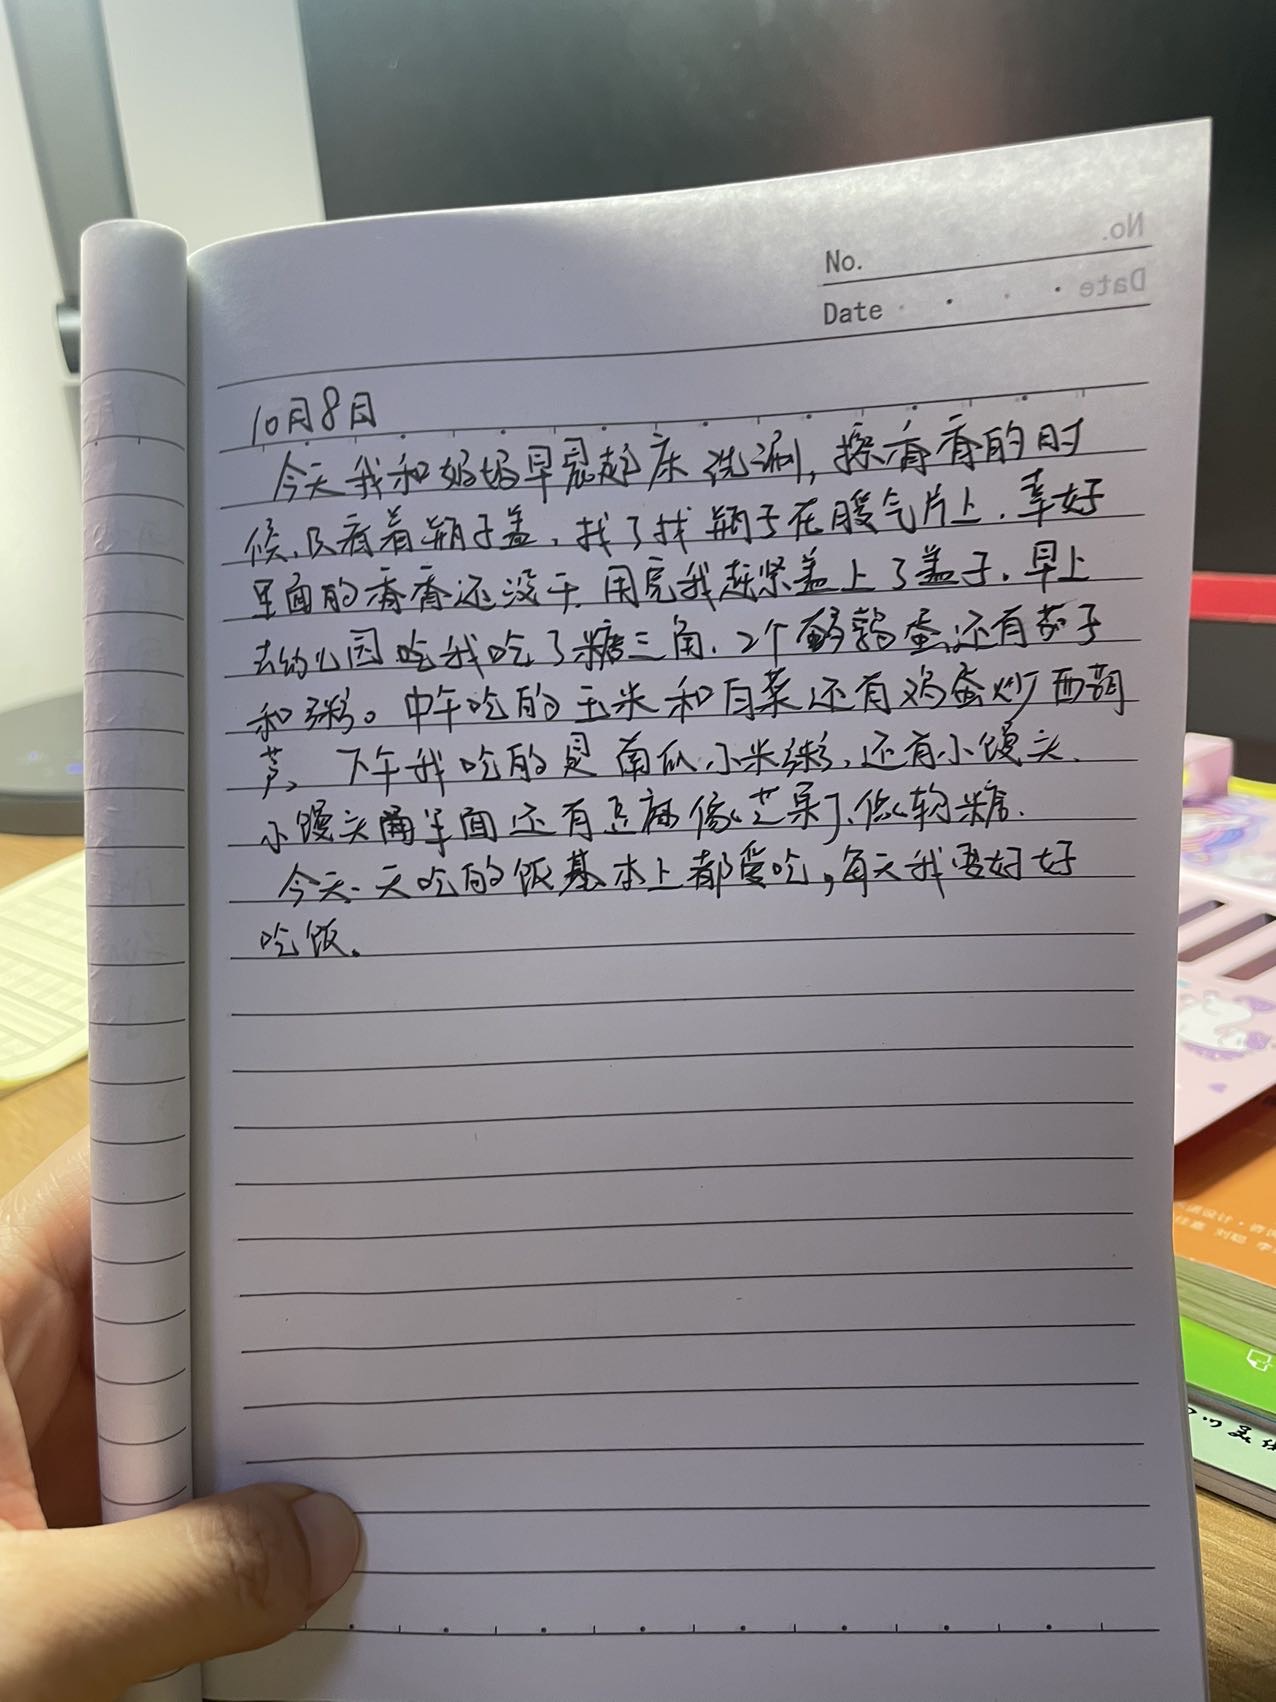 No.
Date
10月8日
今天我和妈妈早晨起床洗漱,擦香香的时
候、只有着瓶子盖、找了找瓶子在暖气片上.幸好
里面的香香还没干.用完我赶紧盖上了盖子.早上
去幼儿园吃我吃了糖三角.2个鹌鹑蛋还有茄子
和粥。中午吃的玉米和白菜还有鸡蛋炒西葫
芦、下午我吃的是南瓜小米粥,还有小馒头、
小馒头里面还有芝麻像芒果丁、像软糖.
今天一天吃的饭基本上都爱吃,每天我要好好
吃饭。